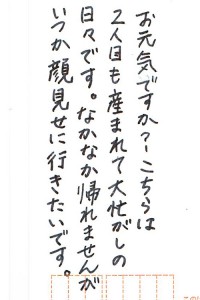 お元気ですか？こちらは
2人目も産まれて大忙がしの
日々です。なかなか帰れませんが
いつか顔見せに行きたいです。